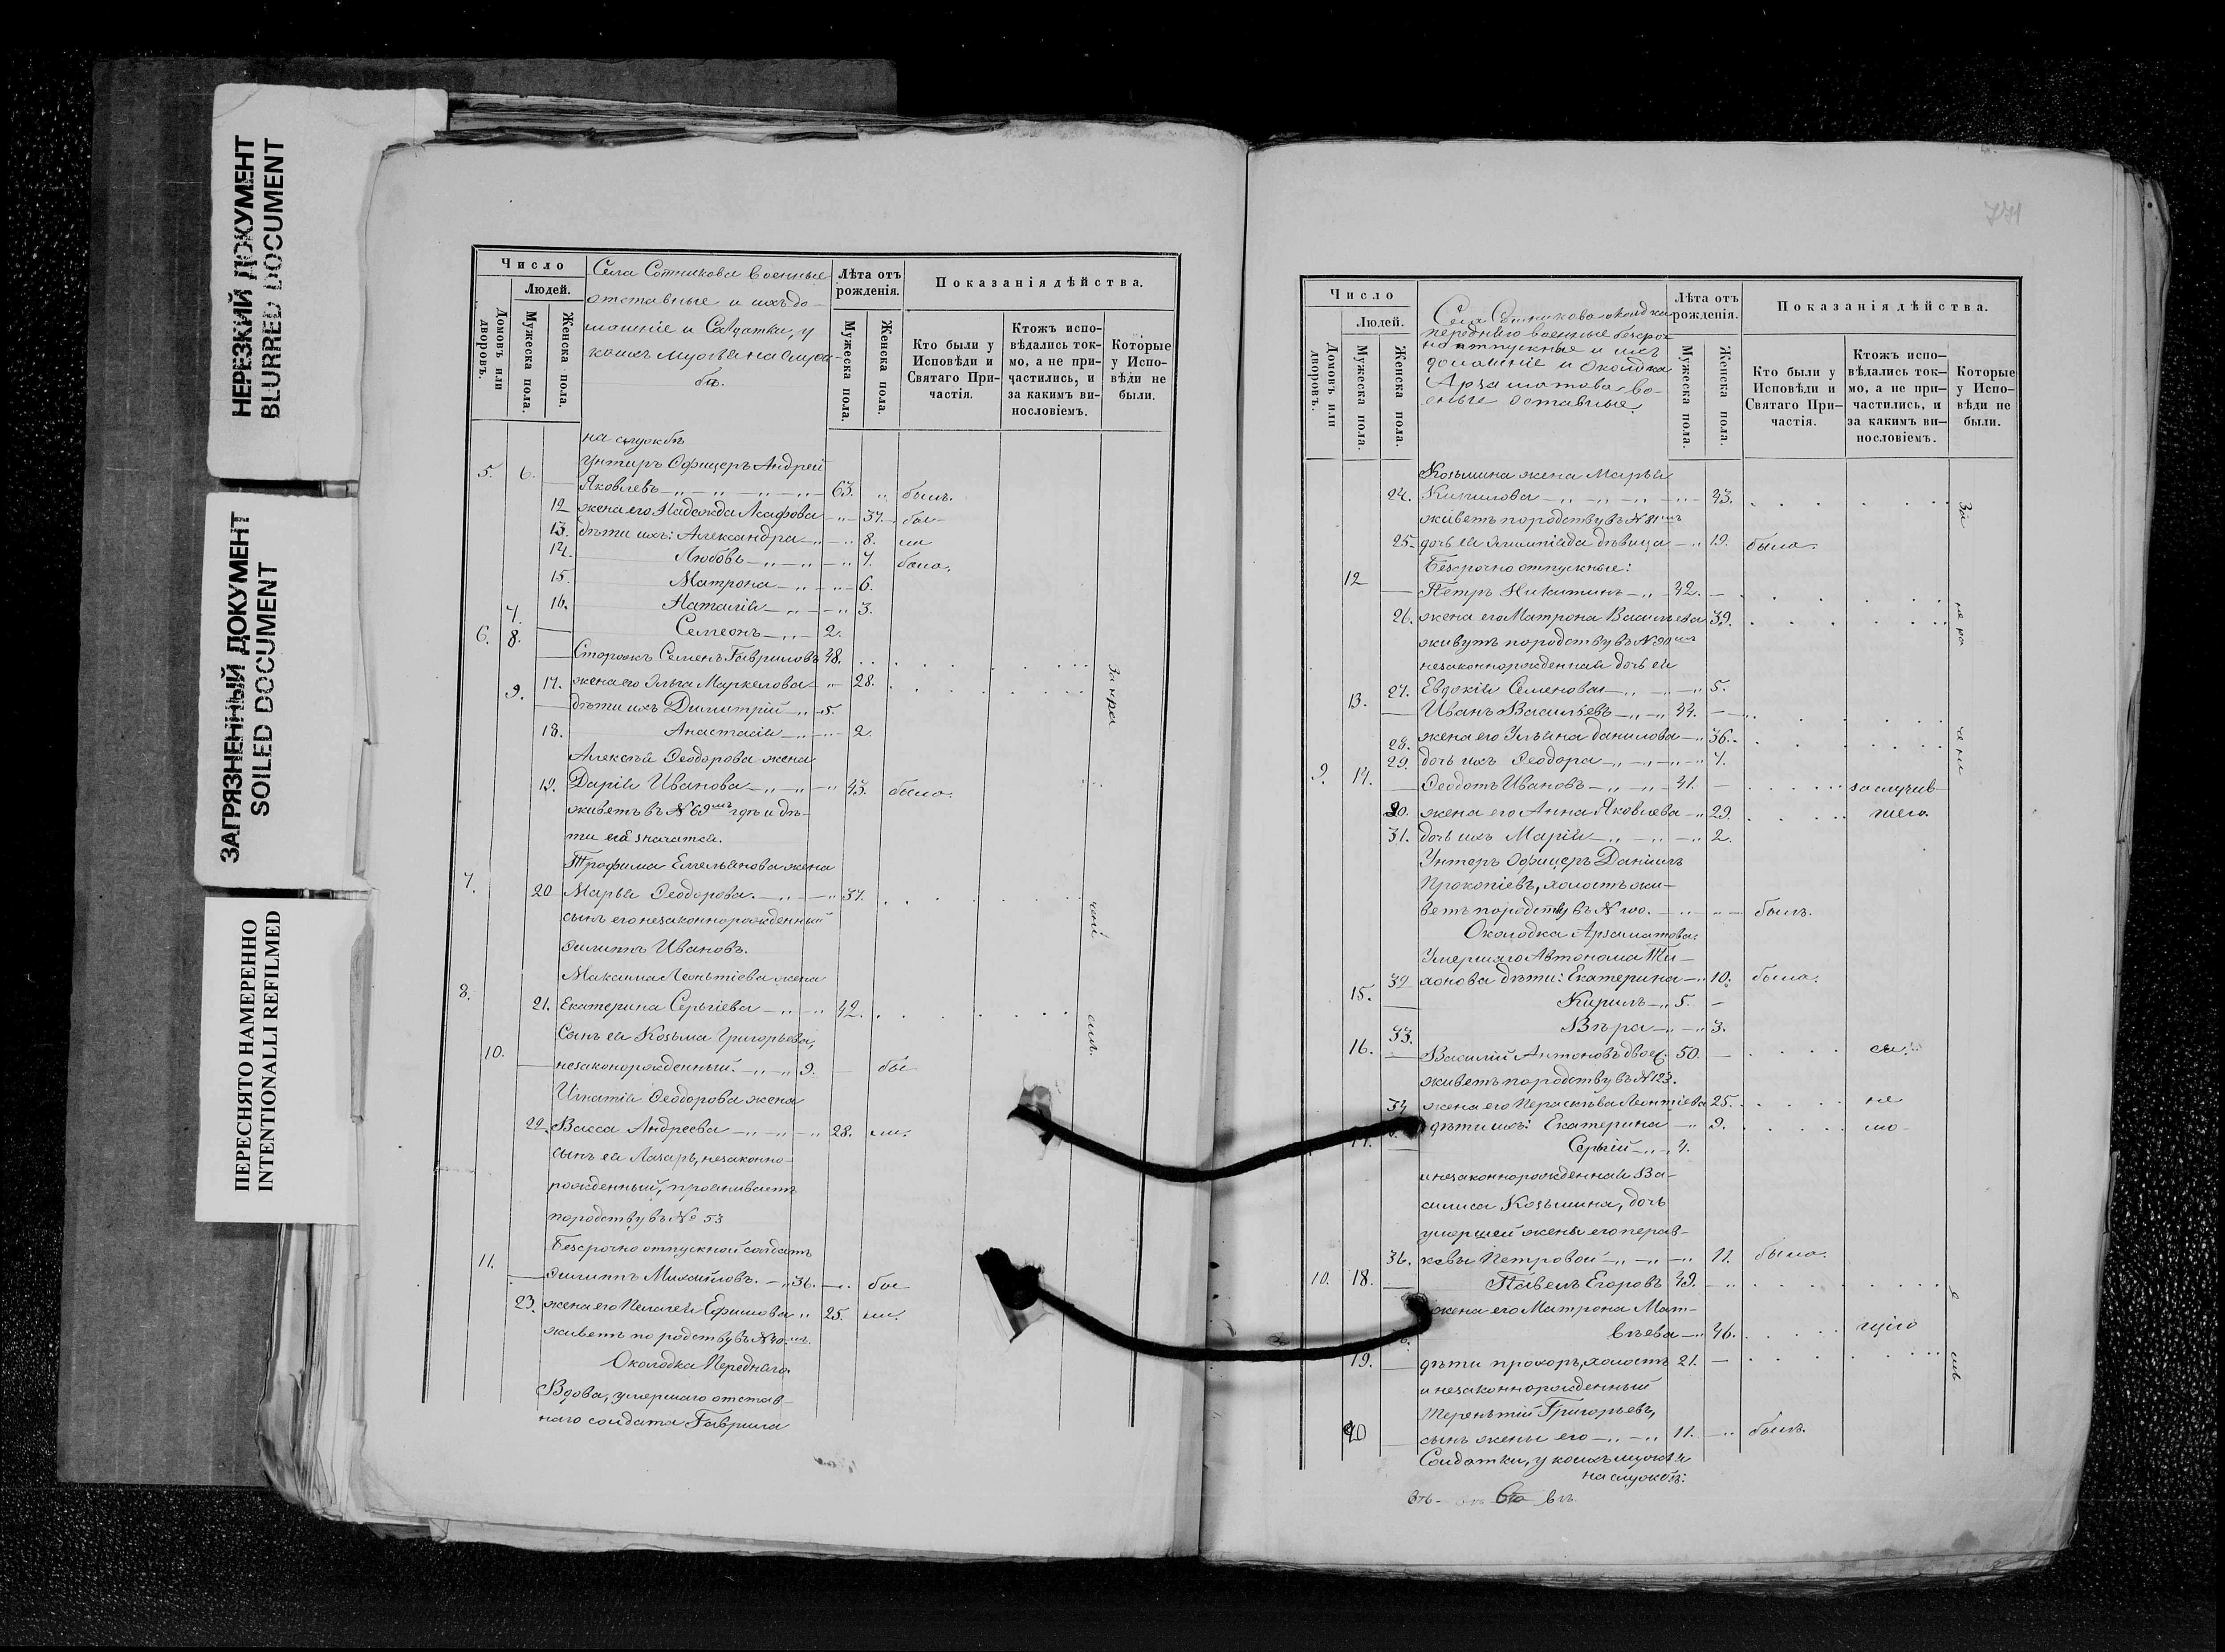 НЕРЕЗКИЙ ДОКУМЕНТ
BLURRED DOCUMENT
ЗАГРЯЗНЕННЫЙ ДОКУМЕНТ
SOILED DOCUMENT
ПЕРЕСНЯТО НАМЕРЕННО
INTENTIONALLI REFILMED
Число
Людей.
Домовъ или дворовъ.
Мужеска пола.
Женска пола.
Села Сотникова военные
отставные и ихъ до-
машніе и Солдатки, у
коихъ мужья на служ-
бѣ.
Лѣта отъ рожденія.
Мужеска пола.
Женска пола.
Показанія дѣйства.
Кто были у Исповѣди и Святаго При-частія.
Ктожъ испо-вѣдались ток-мо, а не при-частились, и за какимъ ви-нословіемъ.
Которые у Испо-вѣди не были.
на службѣ
Унтиръ Офицеръ Андрей
5. 6. Яковлевъ 63. былъ.
12 жена его Надежда 37. бы-
13. дѣти ихъ: Александра 8. ли
14. Любовь 7. была.
15. Матрона 6.
16. Наталія 3.
7. Семеонъ 2.
6. 8. Сторожъ Семенъ Гавриловъ 48.
17. жена его Ольга Маркелова 28.
9. дѣти ихъ Димитрій 5.
18. Анастасія 2.
Алексѣя Ѳеодорова жена
19. Дарія Иванова 43. была.
живетъ въ № 69мъ гдѣ и дѣ-
ти ея значатся.
Трофима Емельянова жена
7. 20 Марья Ѳеодорова. 37.
сынъ его незаконнорожденный
Филиппъ Ивановъ.
Максима Леонтіева жена
8. 21. Екатерина Сергіева 42.
Сынъ ея Козьма Григорьевъ,
10. незаконорожденный. 9. бы
Игнатія Ѳеодорова жена
22. Васса Андреева 28. ли.
сынъ ея Лазарь, незаконно-
рожденный, проживаетъ
по родству въ № 53
Безсрочно отпускной солдатъ
11. Филиппъ Михайловъ. 36. бы
23. жена его Пелагея Ефимова 25. ли.
живетъ по родству въ № 40.мъ.
Околодка Передняго.
Вдова, умершаго отстав-
наго солдата Гаврила
Число
Людей.
Домовъ или дворовъ.
Мужеска пола.
Женска пола.
Села Сотникова околодка
передняго военные безсроч
но отпускные и ихъ
домашніе и околодка
Арзаматова во-
енные оставные.
Лѣта отъ рожденія.
Мужеска пола.
Женска пола.
Показанія дѣйства.
Кто были у Исповѣди и Святаго При-частія.
Ктожъ испо-вѣдались ток-мо, а не при-частились, и за какимъ ви-нословіемъ.
Которые у Испо-вѣди не были.
Козьмина жена Марья
24. Кирилова 43.
живетъ по родству въ № 81мъ
25. дочь ея Олимпіада дѣвица 19. была.
Безсрочно отпускные:
12 Петръ Никитинъ 42.
26. жена его Матрона Васильева 39.
живутъ по родству въ № 90мъ
незаконнорожденная дочь ея
27. Евдокія Семенова 5.
13. Иванъ Васильевъ 44.
28. жена его Ульяна Данилова 36.
29. дочь ихъ Ѳеодора 7.
9. 14. Ѳеодотъ Ивановъ 41. за случив-
30. жена его Анна Яковлева 29. шего.
31. дочь ихъ Марія 2.
Унтеръ Офицеръ Даніилъ
Прокопіевъ, холостъ жи-
ветъ по родству въ № 100. былъ.
Околодка Арзаматова:
Умершаго Автонома Ти-
32 хонова дѣти: Екатерина 10. была.
15. Кирилъ 5.
33. Вѣра 3.
16. Василій Антоновъ 50. ся.
живетъ по родству въ № 123.
34 жена его Пераскѣва Леонтіева 25. не
дѣти ихъ: Екатерина 9. мо-
Сергій 4.
и незаконнорожденная Ва-
силиса Козьмина, дочь
умершей жены его перас-
36. кевы Петровой 11. была.
10. 18. Павелъ Егоровъ 49.
жена его Матрона Мат-
вѣева 46. щію
19. дѣти прохоръ, холостъ 21.
и незаконнорожденный
Терентій Григорьевъ,
20 сынъ жены его 11. былъ.
Солдатки, у коихъ мужья
на службѣ: